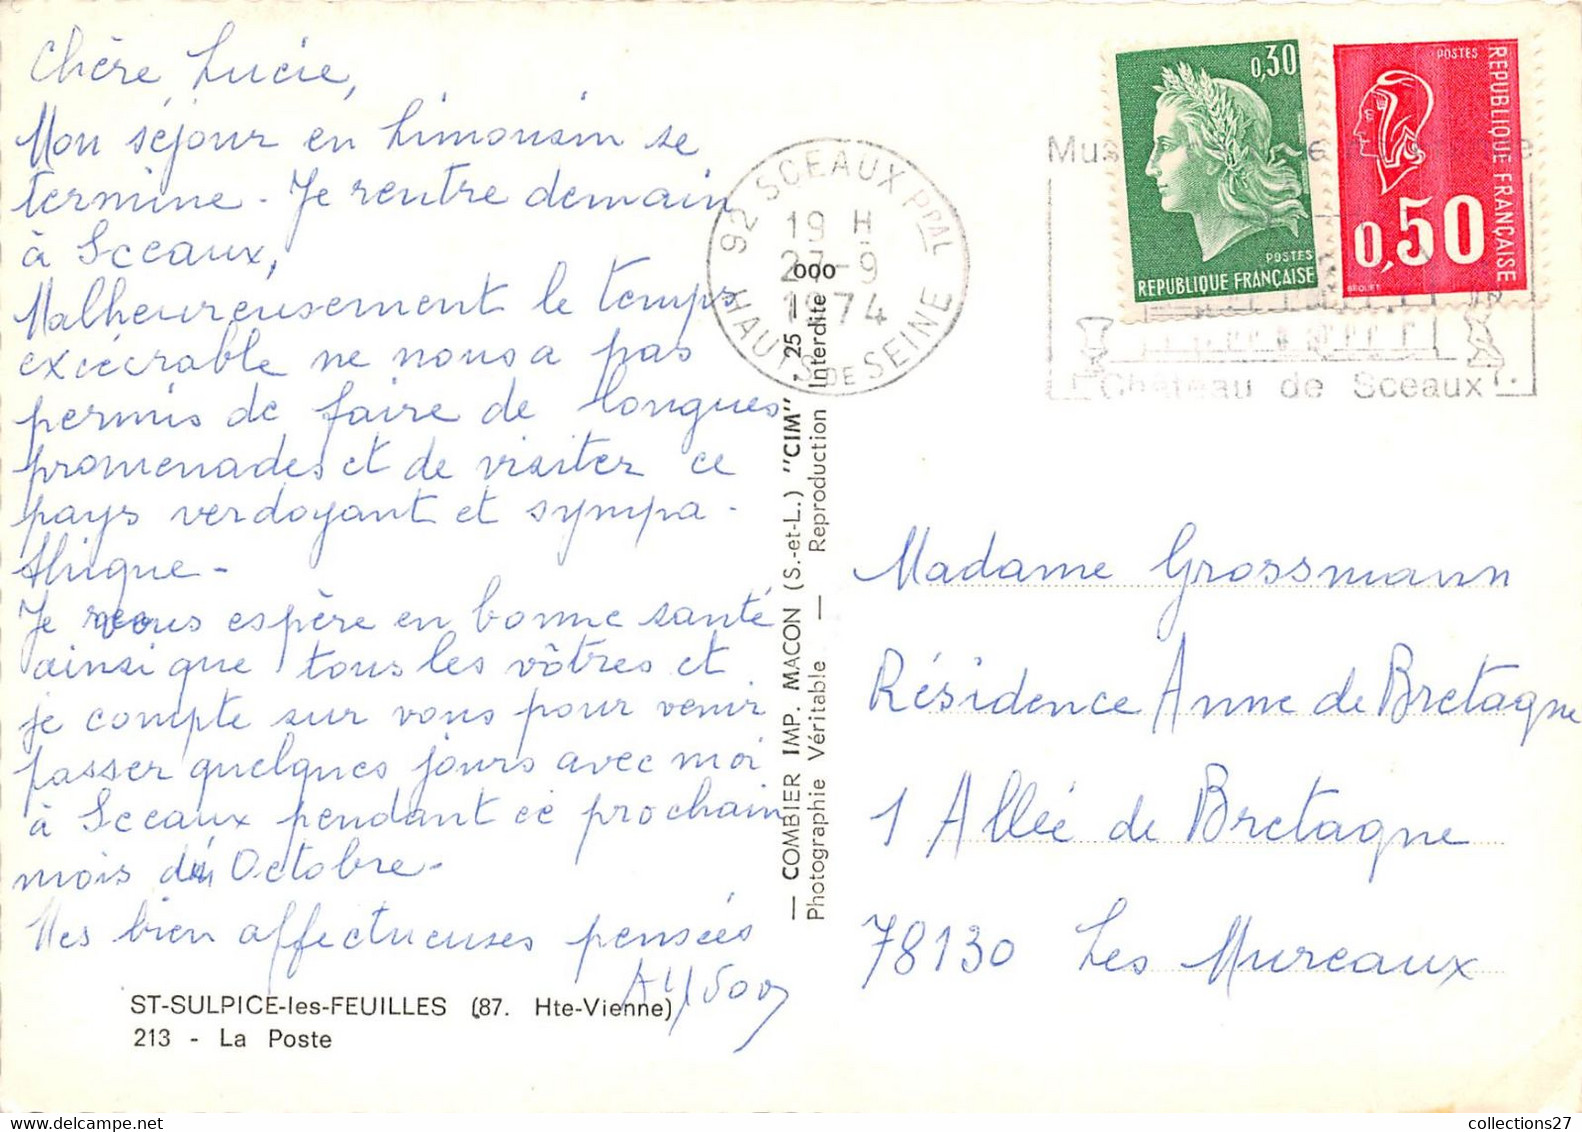 Chère Lucie,
Mon séjour en Limousin se
termine - Je rentre demain
à Sceaux,
Malheureusement le temps
exécrable ne nous a pas
permis de faire de longues
promenades et de visiter ce
pays verdoyant et sympa-
thique -
Je vous espère en bonne santé
ainsi que tous les vôtres et
je compte sur vous pour venir
passer quelques jours avec moi
à Sceaux pendant ce prochain
mois d'Octobre -
Mes bien affectueuses pensées
ST-SULPICE-les-FEUILLES (87. Hte-Vienne)
213 - La Poste
— COMBIER IMP. MACON (S.-et-L.) "CIM" . 25 000
Photographie Véritable — Reproduction Interdite
92 SCEAUX PPAL
19 H
27-9
1974
HAUTS DE SEINE
Château de Sceaux
0,30
POSTES
REPUBLIQUE FRANÇAISE
POSTES
REPUBLIQUE FRANÇAISE
0,50
BEQUET
Madame Grossmann
Résidence Anne de Bretagne
1 Allée de Bretagne
78130 Les Mureaux
collections27